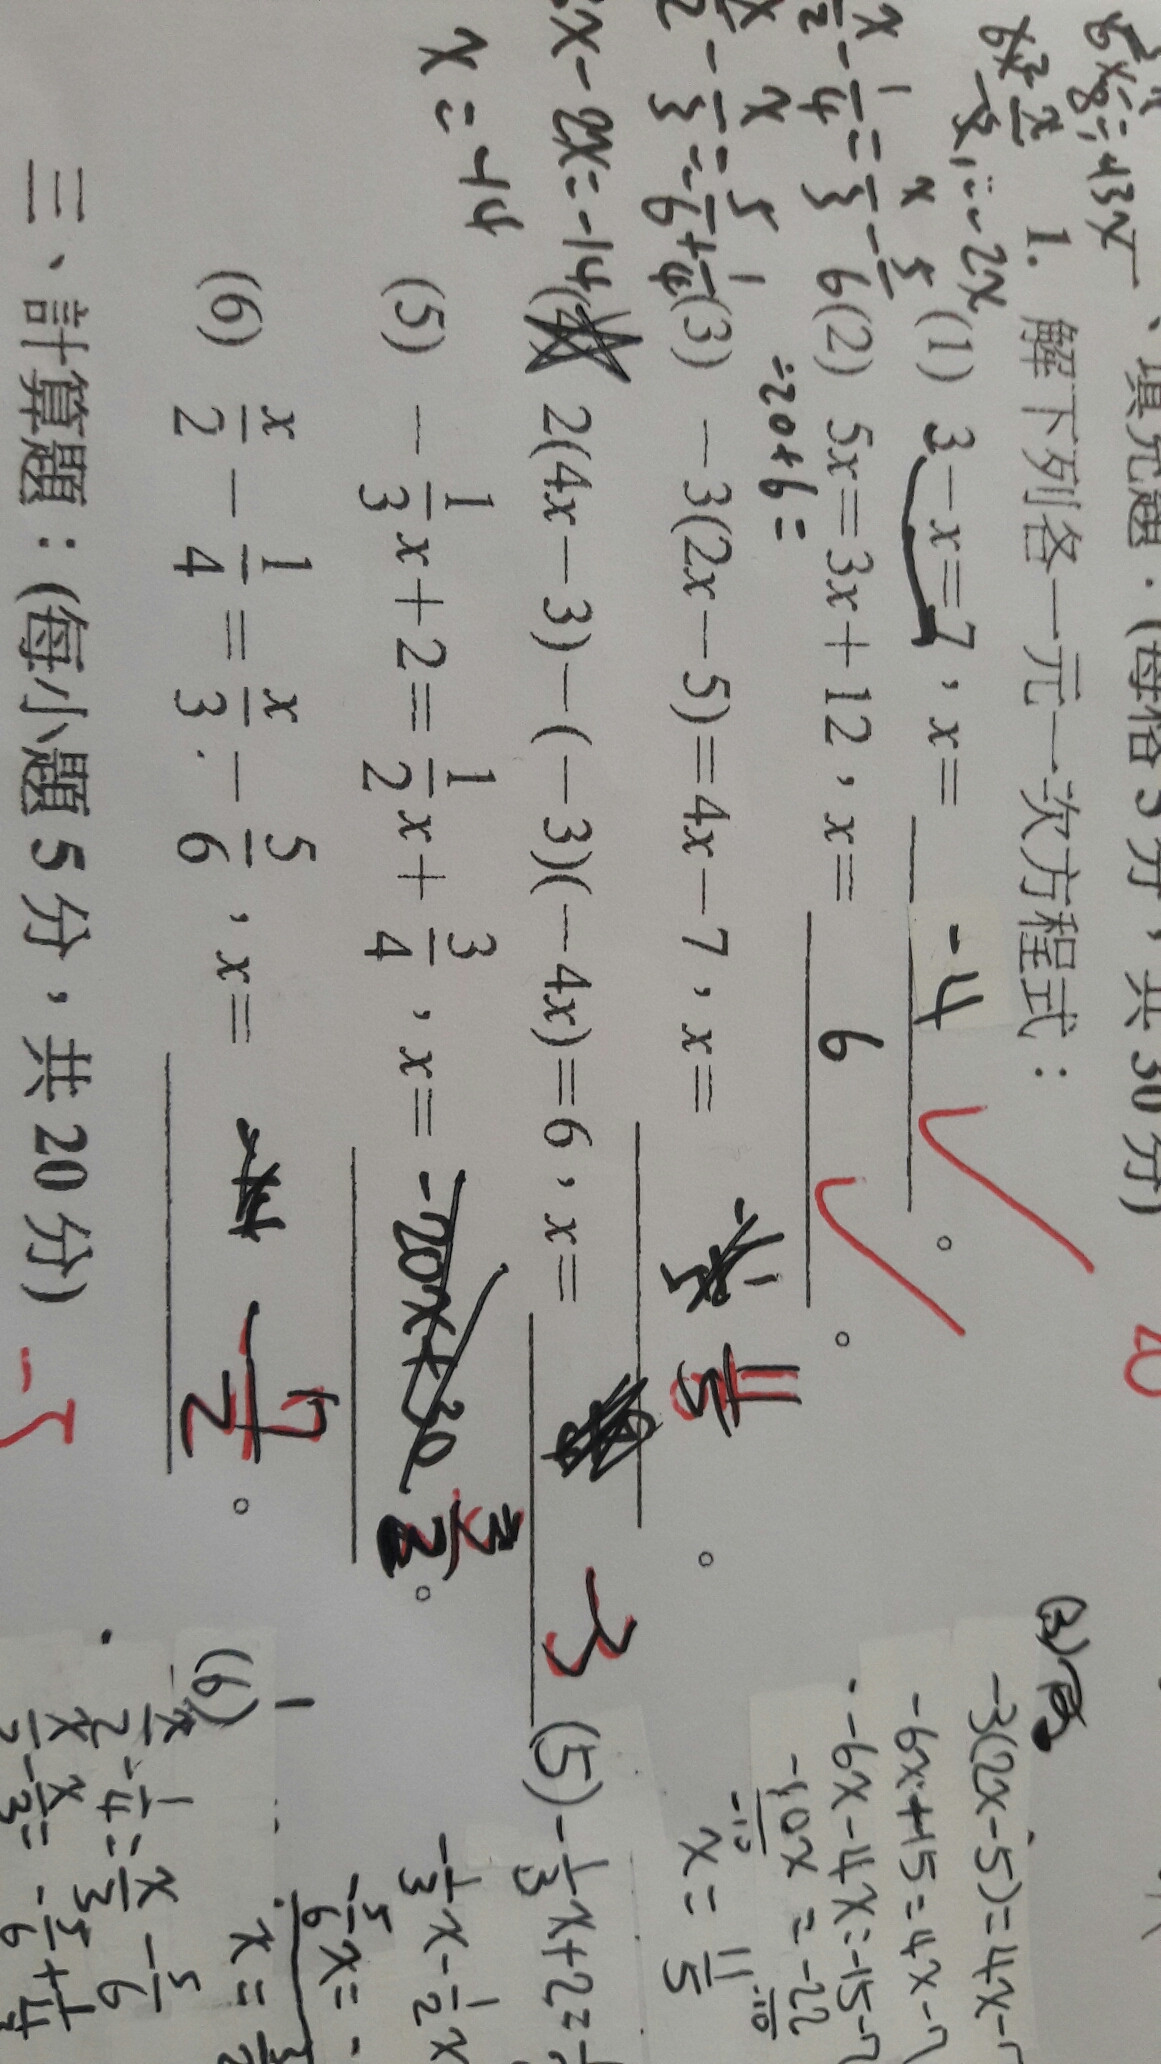 、填充題：(每格5分，共30分)
1. 解下列各一元一次方程式：
(1) 3－x＝7，x＝ -4 。
(2) 5x＝3x＋12，x＝ 6 。
÷20+6=
(3) －3(2x－5)＝4x－7，x＝ 11/5 。
2(4x－3)－(－3)(－4x)＝6，x＝ -3
(5) －1/3x＋2＝1/2x＋3/4，x＝ 3/2 。
(6) x/2－1/4＝x/3－5/6，x＝ -7/2 。
三、計算題：(每小題5分，共20分)
x/2-1/4=x/3-5/6
x/2-x/3=-5/6+1/4
x-2x=-14
x=-14
(3)
-3(2x-5)=4x-7
-6x+15=4x-7
-6x-4x=-15-7
-10x=-22
-10 -10
x=11/5
(5) -1/3x+2=
-1/3x-1/2x
-5/6x=-
x=
(6)
x/2-1/4=x/3-5/6
x/2-x/3=-5/6+1/4